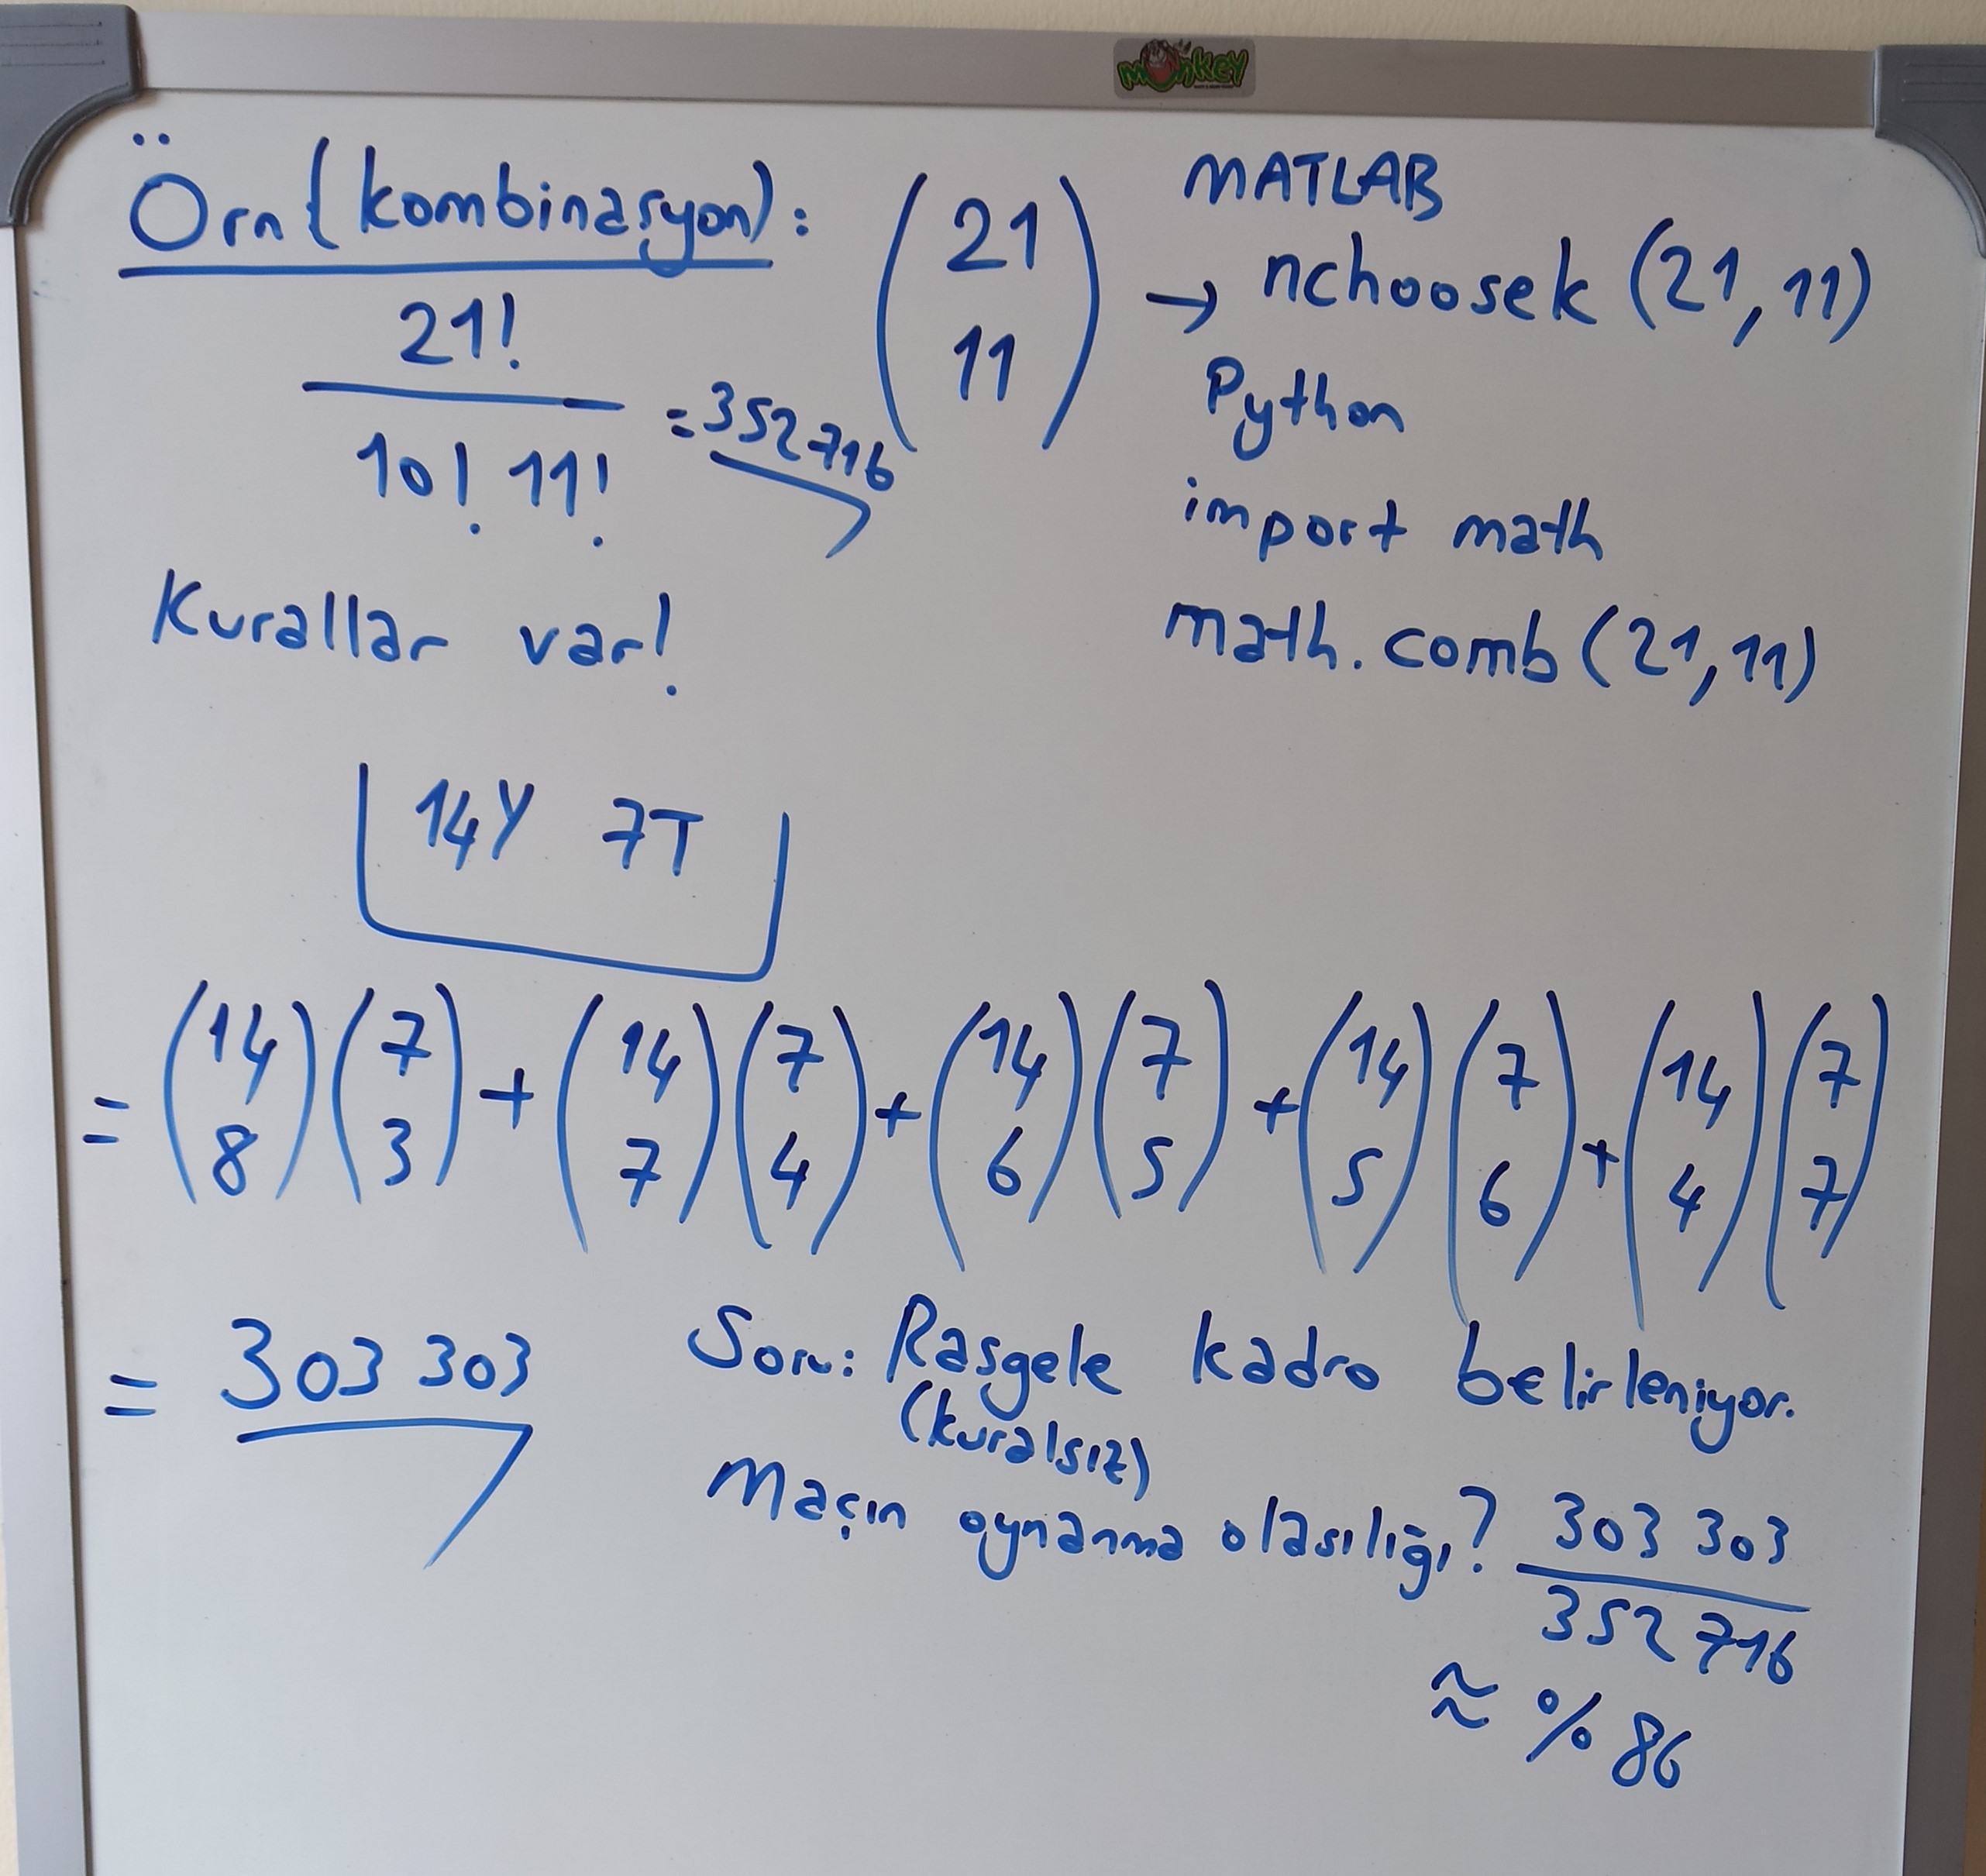 monkey
Örn (kombinasyon): (21 11) → MATLAB
nchoosek (21, 11)
21! / 10! 11! = 352 716
Python
import math
math.comb (21, 11)
Kurallar var!
14Y 7T
= (14 8) (7 3) + (14 7) (7 4) + (14 6) (7 5) + (14 5) (7 6) + (14 4) (7 7)
= 303 303
Soru: Rasgele kadro belirleniyor.
(kuralsız)
Maçın oynanma olasılığı? 303 303 / 352 716
≈ % 86